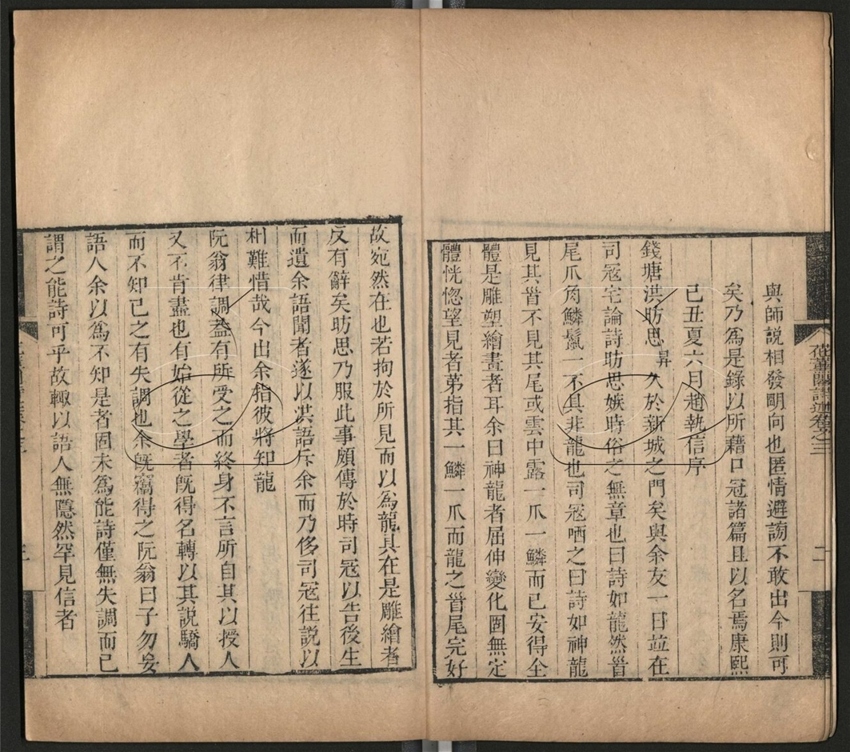 與師說相發明向也匿情避謗不敢出今則可
矣乃為是錄以所藉口冠諸篇且以名焉康熙
己丑夏六月趙執信序
錢塘洪昉思昇久於新城之門矣與余友一日並在
司寇宅論詩昉思嫉時俗之無章也曰詩如龍然首
尾爪角鱗鬣一不具非龍也司寇哂之曰詩如神龍
見其首不見其尾或雲中露一爪一鱗而已安得全
體是雕塑繪畫者耳余曰神龍者屈伸變化固無定
體恍惚望見者第指其一鱗一爪而龍之首尾完好
故宛然在也若拘於所見而以為龍具在是雕繪者
反有辭矣昉思乃服此事頗傳於時司寇以告後生
而遺余語聞者遂以洪語斥余而乃侈司寇往說以
相難惜哉今出余指彼將知龍
阮翁律調葢有所受之而終身不言所自其以授人
又不肯盡也有始從之學者旣得名轉以其說驕人
而不知己之有失調也余旣竊得之阮翁曰子勿妄
語人余以為不知是者固未為能詩僅無失調而已
謂之能詩可乎故輒以語人無隱然罕見信者